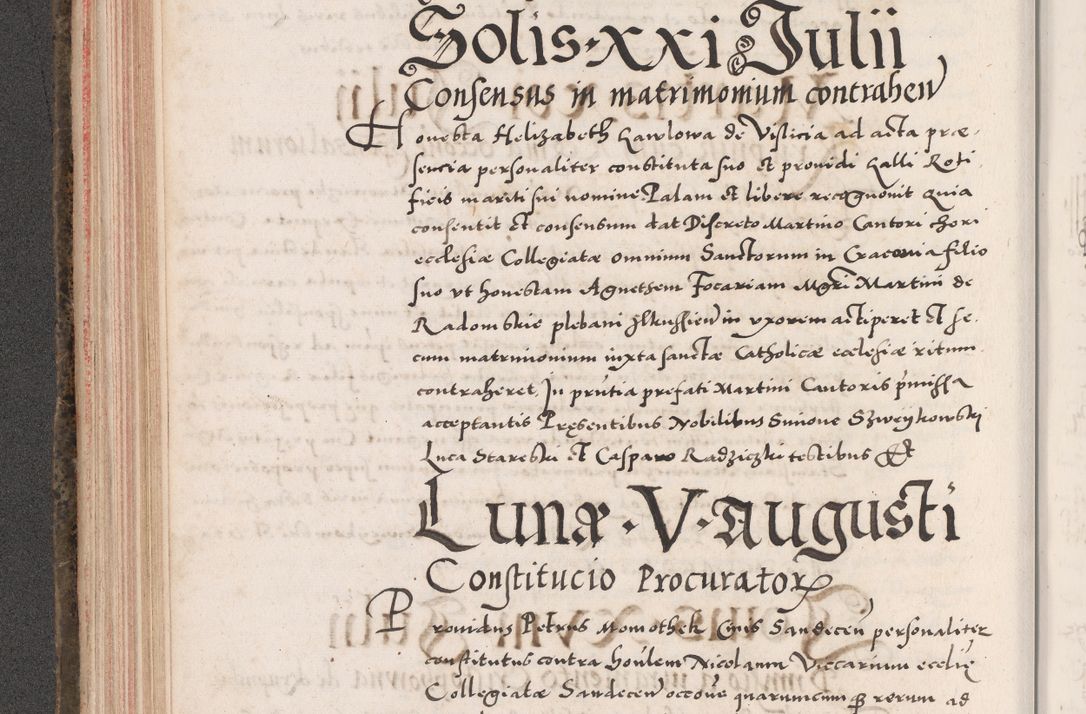 Solis · xxi Julii
Consensus in matrimonium contrahen
Honesta Helizabeth Gawlowa de Vislicia ad acta præ-
sencia personaliter constituta suo et providi Galli Roti
ficis mariti sui nomine. Palam et libere recognovit quia
consentit et consensum dat Discreto Martino Cantori chori
ecclesiæ Collegiatæ omnium Sanctorum in Cracovia filio
suo ut honestam Agnethem Focariam Mgri Martini de
Radomskie plebani Ilkussien in uxorem acciperet et se-
cum matrimonium iuxta sanctæ Catholicæ ecclesiæ ritum
contraheret. In pñtia prefati Martini Cantoris pmissa
acceptantis Pręsentibus Nobilibus Simone Szweykowski
Luca Starebski et Casparo Radziczki testibus Et
Lunæ · V · Augusti
Constitucio Procurator
Providus Petrus Momothek Civis Sandecen personaliter
constitutus contra honlem Nicolaum Viccarium ecclię
Collegiatæ Sandecen occone quarumcumq rerum ad